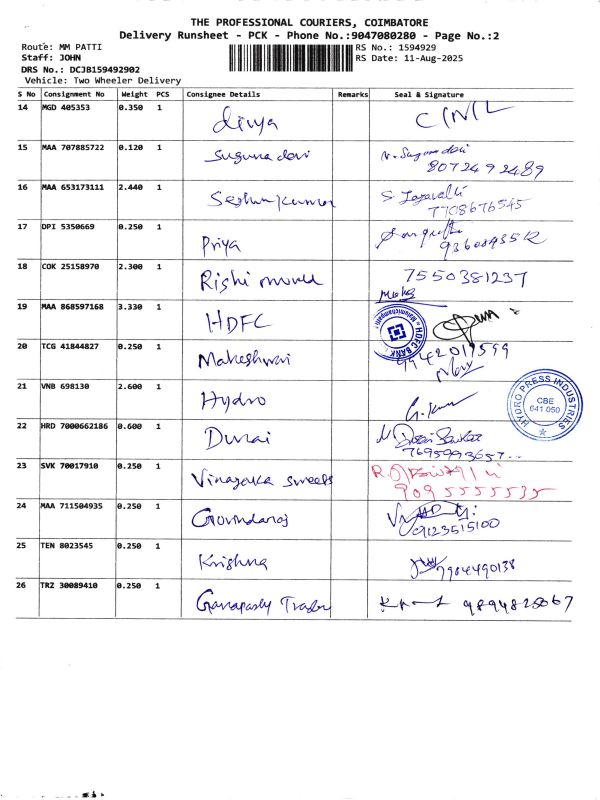 THE PROFESSIONAL COURIERS, COIMBATORE
Delivery Runsheet - PCK - Phone No.:9047080280 - Page No.:2
Route: MM PATTI
RS No.: 1594929
Staff: JOHN
RS Date: 11-Aug-2025
DRS No.: DCJB159492902
Vehicle: Two Wheeler Delivery
S No Consignment No Weight PCS Consignee Details Remarks Seal & Signature
14 MGD 405353 0.350 1 divya
15 MAA 707885722 0.120 1 Suguna devi 8072492489
16 MAA 653173111 2.440 1 Seshu Kumar 7708676545
17 DPI 5350669 0.250 1 Priya
18 COK 25158970 2.300 1 Rishi 7550381237
19 MAA 868597168 3.330 1 HDFC HDFC BANK
20 TCG 41844827 0.250 1 Maheshwari 9942017599
21 VNB 698130 2.600 1 Hydro G. Kumar
HYDRO PRESS INDUSTRIES
CBE
641 050
22 HRD 7000662186 0.600 1 Durai 7695993657
23 SVK 70017910 0.250 1 Vinayaka sweets 9095555535
24 MAA 711504935 0.250 1 Govindaraj 9123515100
25 TEN 8023545 0.250 1 Krishna 7904490138
26 TRZ 30089410 0.250 1 Ganapathy Trader